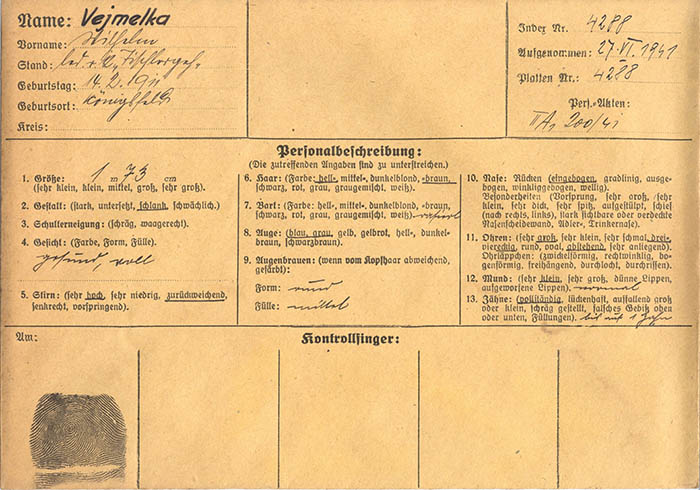 Name: Vejmelka
Vorname: Wilhelm
Stand: led. r.k. Tischlergeh.
Geburtstag: 14.2.1911
Geburtsort: Königsfeld
Kreis:
Index Nr. 4288
Aufgenommen: 27.VI.1941
Platten Nr.: 4288
Pers.-Akten:
200/41
Personalbeschreibung:
(Die zutreffenden Angaben sind zu unterstreichen.)
1. Größe: 1 m 73 cm
(sehr klein, klein, mittel, groß, sehr groß).
2. Gestalt: (stark, untersetzt, schlank, schwächlich.)
3. Schulterneigung: (schräg, waagerecht.)
4. Gesicht: (Farbe, Form, Fülle).
gesund, voll
5. Stirn: (sehr hoch, sehr niedrig, zurückweichend,
senkrecht, vorspringend).
6. Haar: (Farbe: hell-, mittel-, dunkelblond, -braun,
schwarz, rot, grau, graugemischt, weiß).
7. Bart: (Farbe: hell-, mittel-, dunkelblond, -braun,
schwarz, rot, grau, graugemischt, weiß) rasiert
8. Auge: (blau, grau, gelb, gelbrot, hell-, dunkel-
braun, schwarzbraun).
9. Augenbrauen: (wenn vom Kopfhaar abweichend,
gefärbt):
Form: rund
Fülle: mittel
10. Nase: Rücken (eingebogen, gradlinig, ausge-
bogen, winkliggebogen, wellig).
Besonderheiten (Vorsprung, sehr groß, sehr
klein, sehr dick, sehr spitz, aufgestülpt, schief
(nach rechts, links), stark sichtbare oder verdeckte
Nasenscheidewand, Adler-, Trinkernase).
11. Ohren: (sehr groß, sehr klein, sehr schmal, drei-,
viereckig, rund, oval, abstehend, sehr anliegend).
Ohrläppchen: (zwickelförmig, rechtwinklig, bo-
genförmig, freihängend, durchlocht, durchrissen).
12. Mund: (sehr klein, sehr groß, dünne Lippen,
aufgeworfene Lippen). normal
13. Zähne: (vollständig, lückenhaft, auffallend groß
oder klein, schräg gestellt, falsches Gebiß oben
oder unten, Füllungen). bis auf 1 Zahn
Am:
Kontrollfinger: